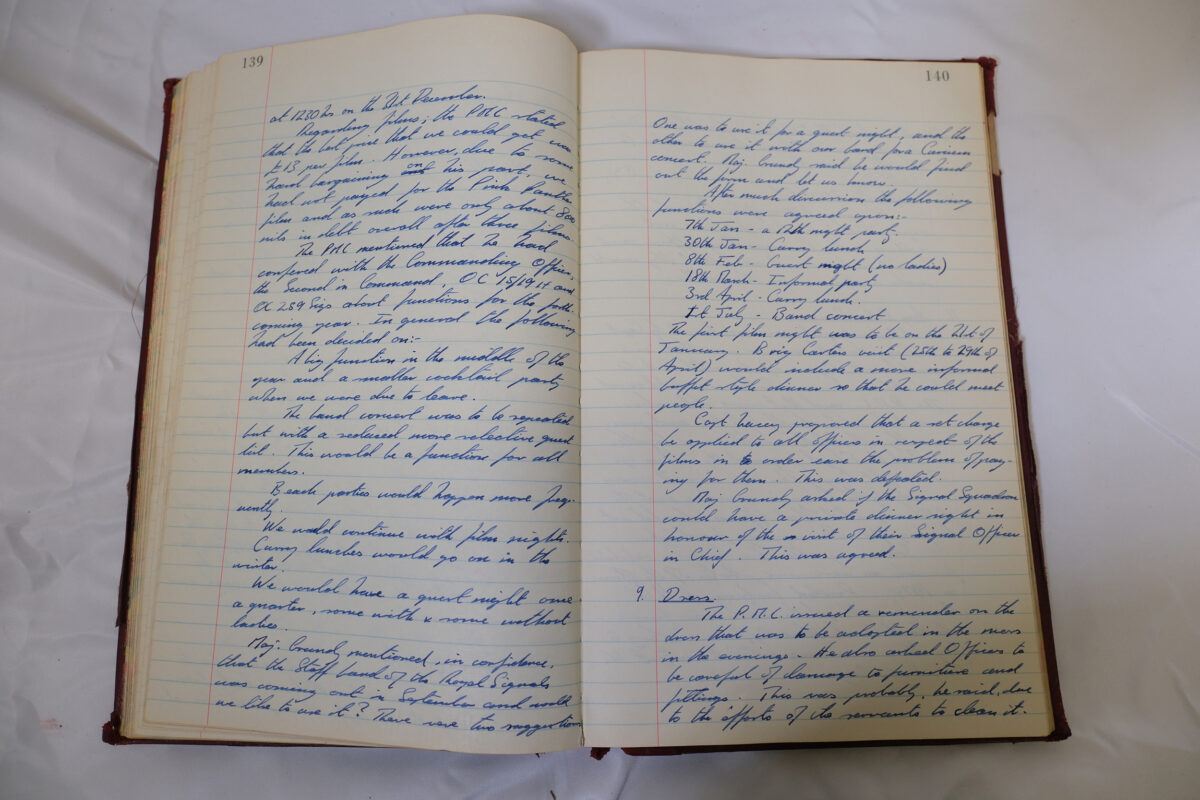 139
at 1230 hrs on the 21st December.
Regarding films; the PMC stated
that the best price that we could get was
£13 per film. However, due to some
hard bargaining on his part, we
had not payed for the Pink Panther
film and as such were only about 800
mils in debt overall after three films.
The PMC mentioned that he had
confered with the Commanding Officer,
the Second in Command, OC 15/19 H and
OC 259 Sigs about functions for the forth-
coming year. In general the following
had been decided on:-
A big function in the middle of the
year and a smaller cocktail party
when we were due to leave.
The band concert was to be repeated
but with a reduced more selective guest
list. This would be a function for all
members.
Beach parties would happen more freq-
uently.
We would continue with film nights.
Curry lunches would go on in the
winter.
We would have a guest night once
a quarter, some with & some without
ladies.
Maj. Grundy mentioned, in confidence,
that the Staff band of the Royal Signals
was coming out in September and would
we like to use it? There were two suggestions
140
One was to use it for a guest night, and the
other to use it with our band for a Curium
concert. Maj. Grundy said he would find
out the form and let us know.
After much discussion the following
functions were agreed upon:-
7th Jan - a 12th night party.
30th Jan - Curry lunch
8th Feb - Guest night (no ladies)
18th March - Informal party
3rd April - Curry lunch.
1st July - Band concert
The first film night was to be on the 21st of
January. Brig Carters visit (25th to 29th of
April) would include a more informal
buffet style dinner so that he could meet
people.
Capt proposed that a set charge
be applied to all officers in respect of the
films in order ease the problem of pay-
ing for them. This was defeated.
Maj. Grundy asked if the Signal Squadron
could have a private dinner night in
honour of the visit of their Signal Officer
in Chief. This was agreed.
9. Dress.
The P.M.C. issued a reminder on the
dress that was to be adopted in the mess
in the evenings. He also asked Officers to
be careful of damage to furniture and
fittings. This was probably, he said, due
to the efforts of its servants to clean it.